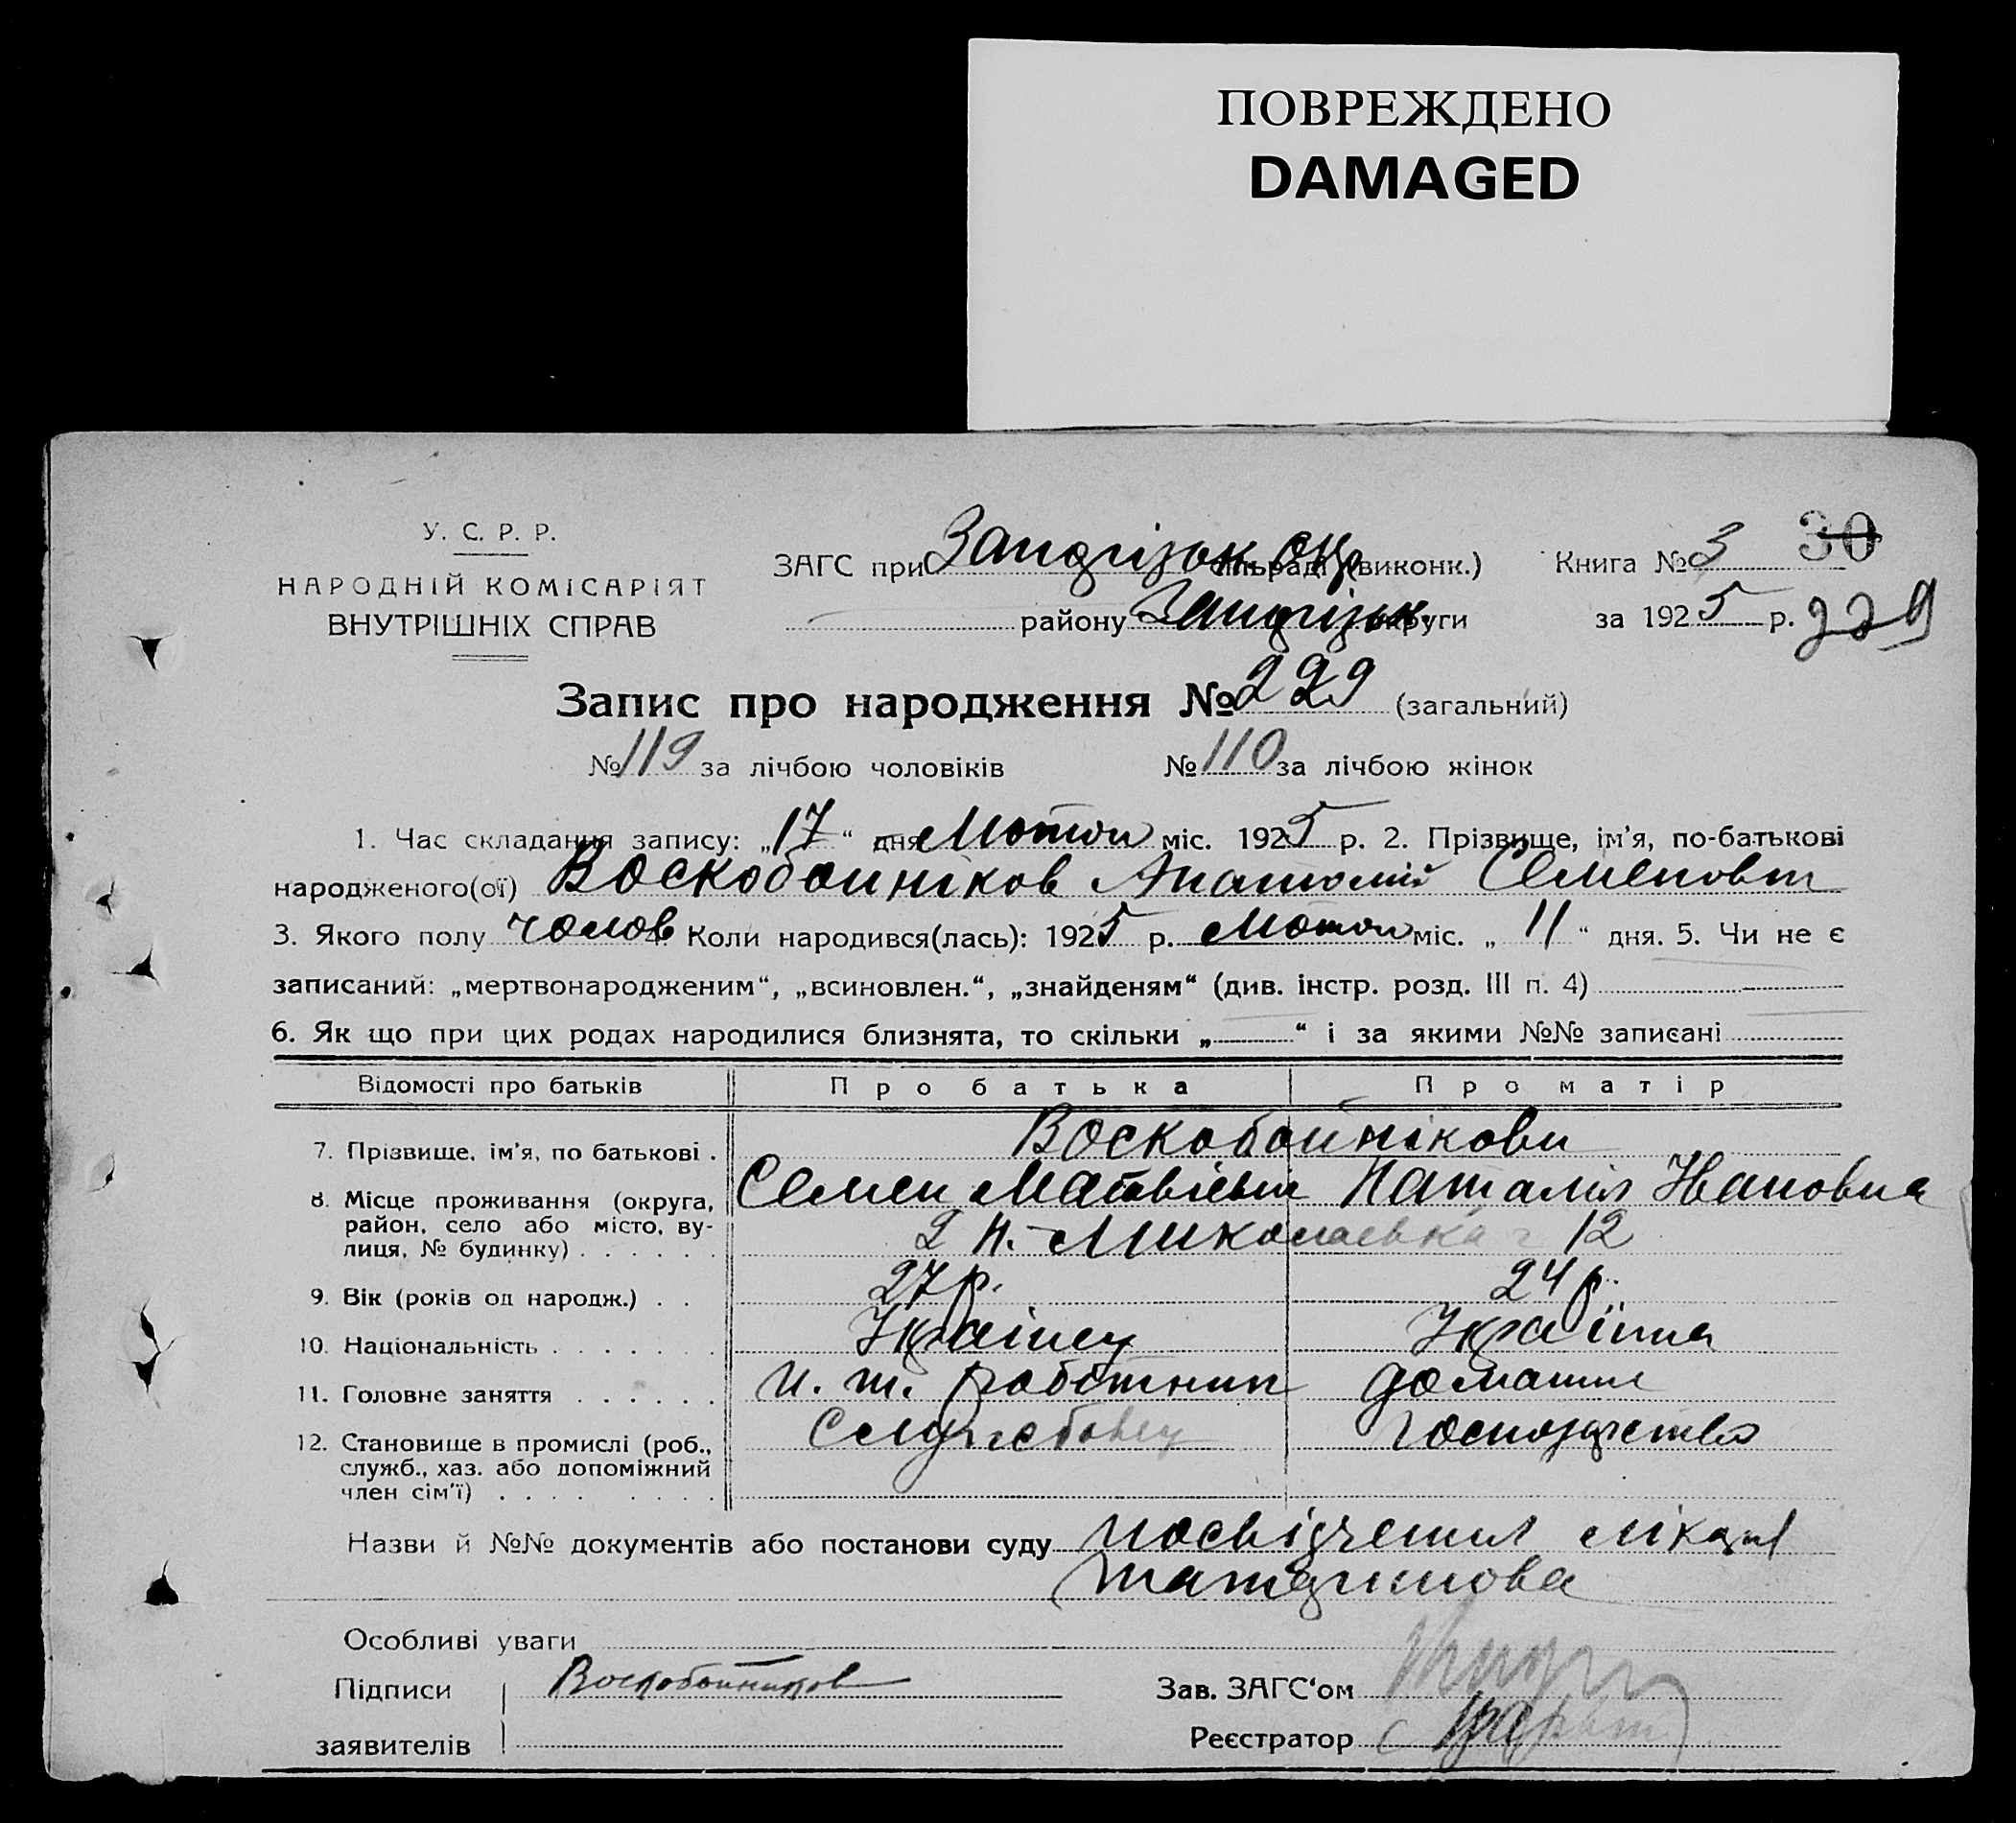 ПОВРЕЖДЕНО
DAMAGED
У. С. Р. Р.
НАРОДНІЙ КОМІСАРІЯТ
ВНУТРІШНІХ СПРАВ
ЗАГС при сільраді (виконк.)
району округи
Книга № 3 30
за 1925 р. 229
Запис про народження № 229 (загальний)
№ 119 за лічбою чоловіків № 110 за лічбою жінок
1. Час складання запису: „17“ дня Лютого міс. 1925 р. 2. Прізвище, ім'я, по-батькові
народженого(ої) Воскобойніков Анатолій Семенович
3. Якого полу чолов 4. Коли народився(лась): 1925 р. Лютого міс. „11“ дня. 5. Чи не є
записаний: „мертвонародженим“, „всиновлен.“, „знайденям“ (див. інстр. розд. III п. 4)
6. Як що при цих родах народилися близнята, то скільки „ “ і за якими №№ записані
Відомості про батьків Про батька Про матір
7. Прізвище, ім'я, по батькові . Воскобойнікови
8. Місце проживання (округа, район, село або місто, ву-лиця, № будинку) . . . . . . Семен Матвієвич Наталія Івановна
2 Н.-Миколаевка 12
9. Вік (років од народж.) . . 27 р. 24 р.
10. Національність . . . . . . . Украінец Украінка
11. Головне заняття . . . . . . робітник домашнє
12. Становище в промислі (роб., служб., хаз. або допоміжний член сім'ї) . . . . . . . . Службовец господарство
Назви й №№ документів або постанови суду посвідчення лікаря
Особливі уваги
Підписи заявителів Воскобойников
Зав. ЗАГС'ом
Реєстратор